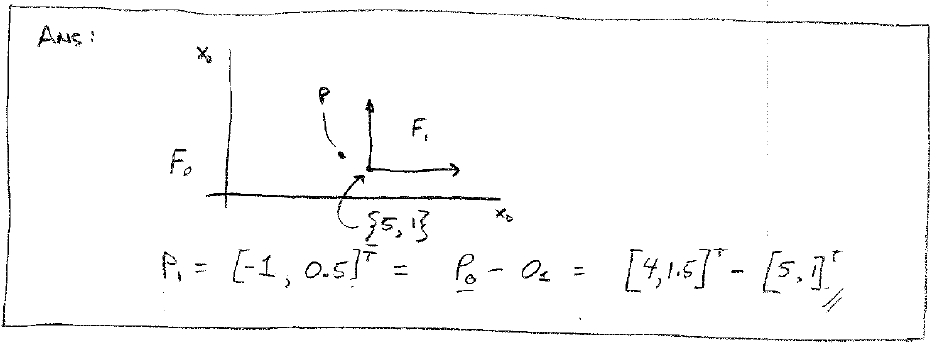 Ans:
X₀
P
F₁
F₀
{5, 1}
X₀
P₁ = [-1, 0.5]ᵀ = P₀ - O₁ = [4, 1.5]ᵀ - [5, 1]ᵀ //